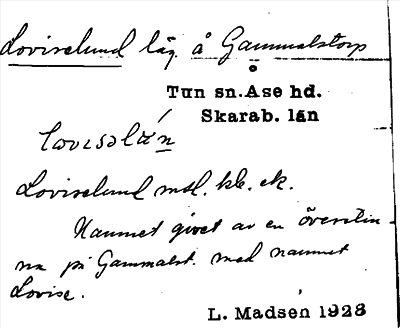 Loviselund läg. å Gammalstorp
Tun sn. Åse hd.
Skarab. län
Loviselund mal. kb. ek.
Namnet givet av en överstin-
na på Gammalst. med namnet
Lovise.
L. Madsén 1928